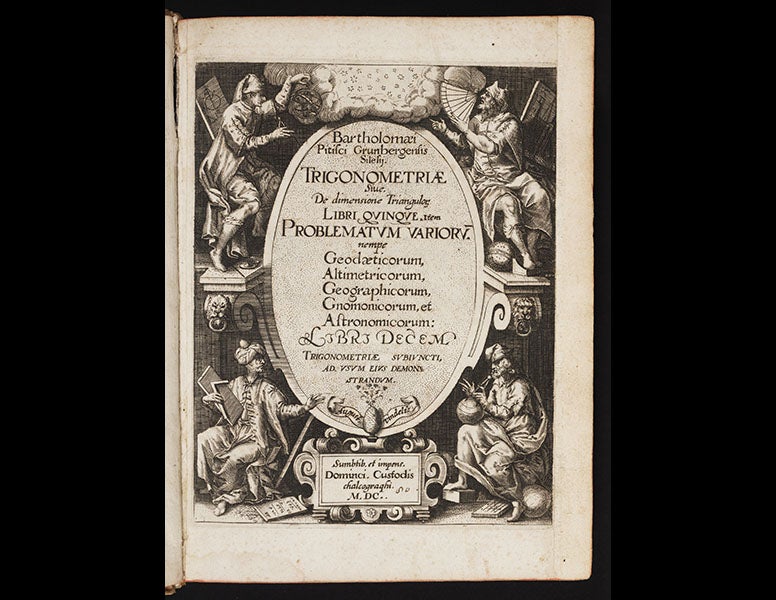 Bartholomæi
Pitisci Grunbergensis
Silesij.
TRIGONOMETRIÆ
Siue.
De dimensione Triangulor
LIBRI QVINQVE, Item
PROBLEMATVM VARIORV̄.
nempe
Geodæticorum,
Altimetricorum,
Geographicorum,
Gnomonicorum, et
Astronomicorum:
LIBRI DECEM.
TRIGONOMETRIÆ SVBIVNCTI,
AD VSVM EIVS DEMON⸗
STRANDVM.
Augustæ Vindelic:
Sumbtib. et impens.
Dominici Custodis
chalcographi.
M. DC..